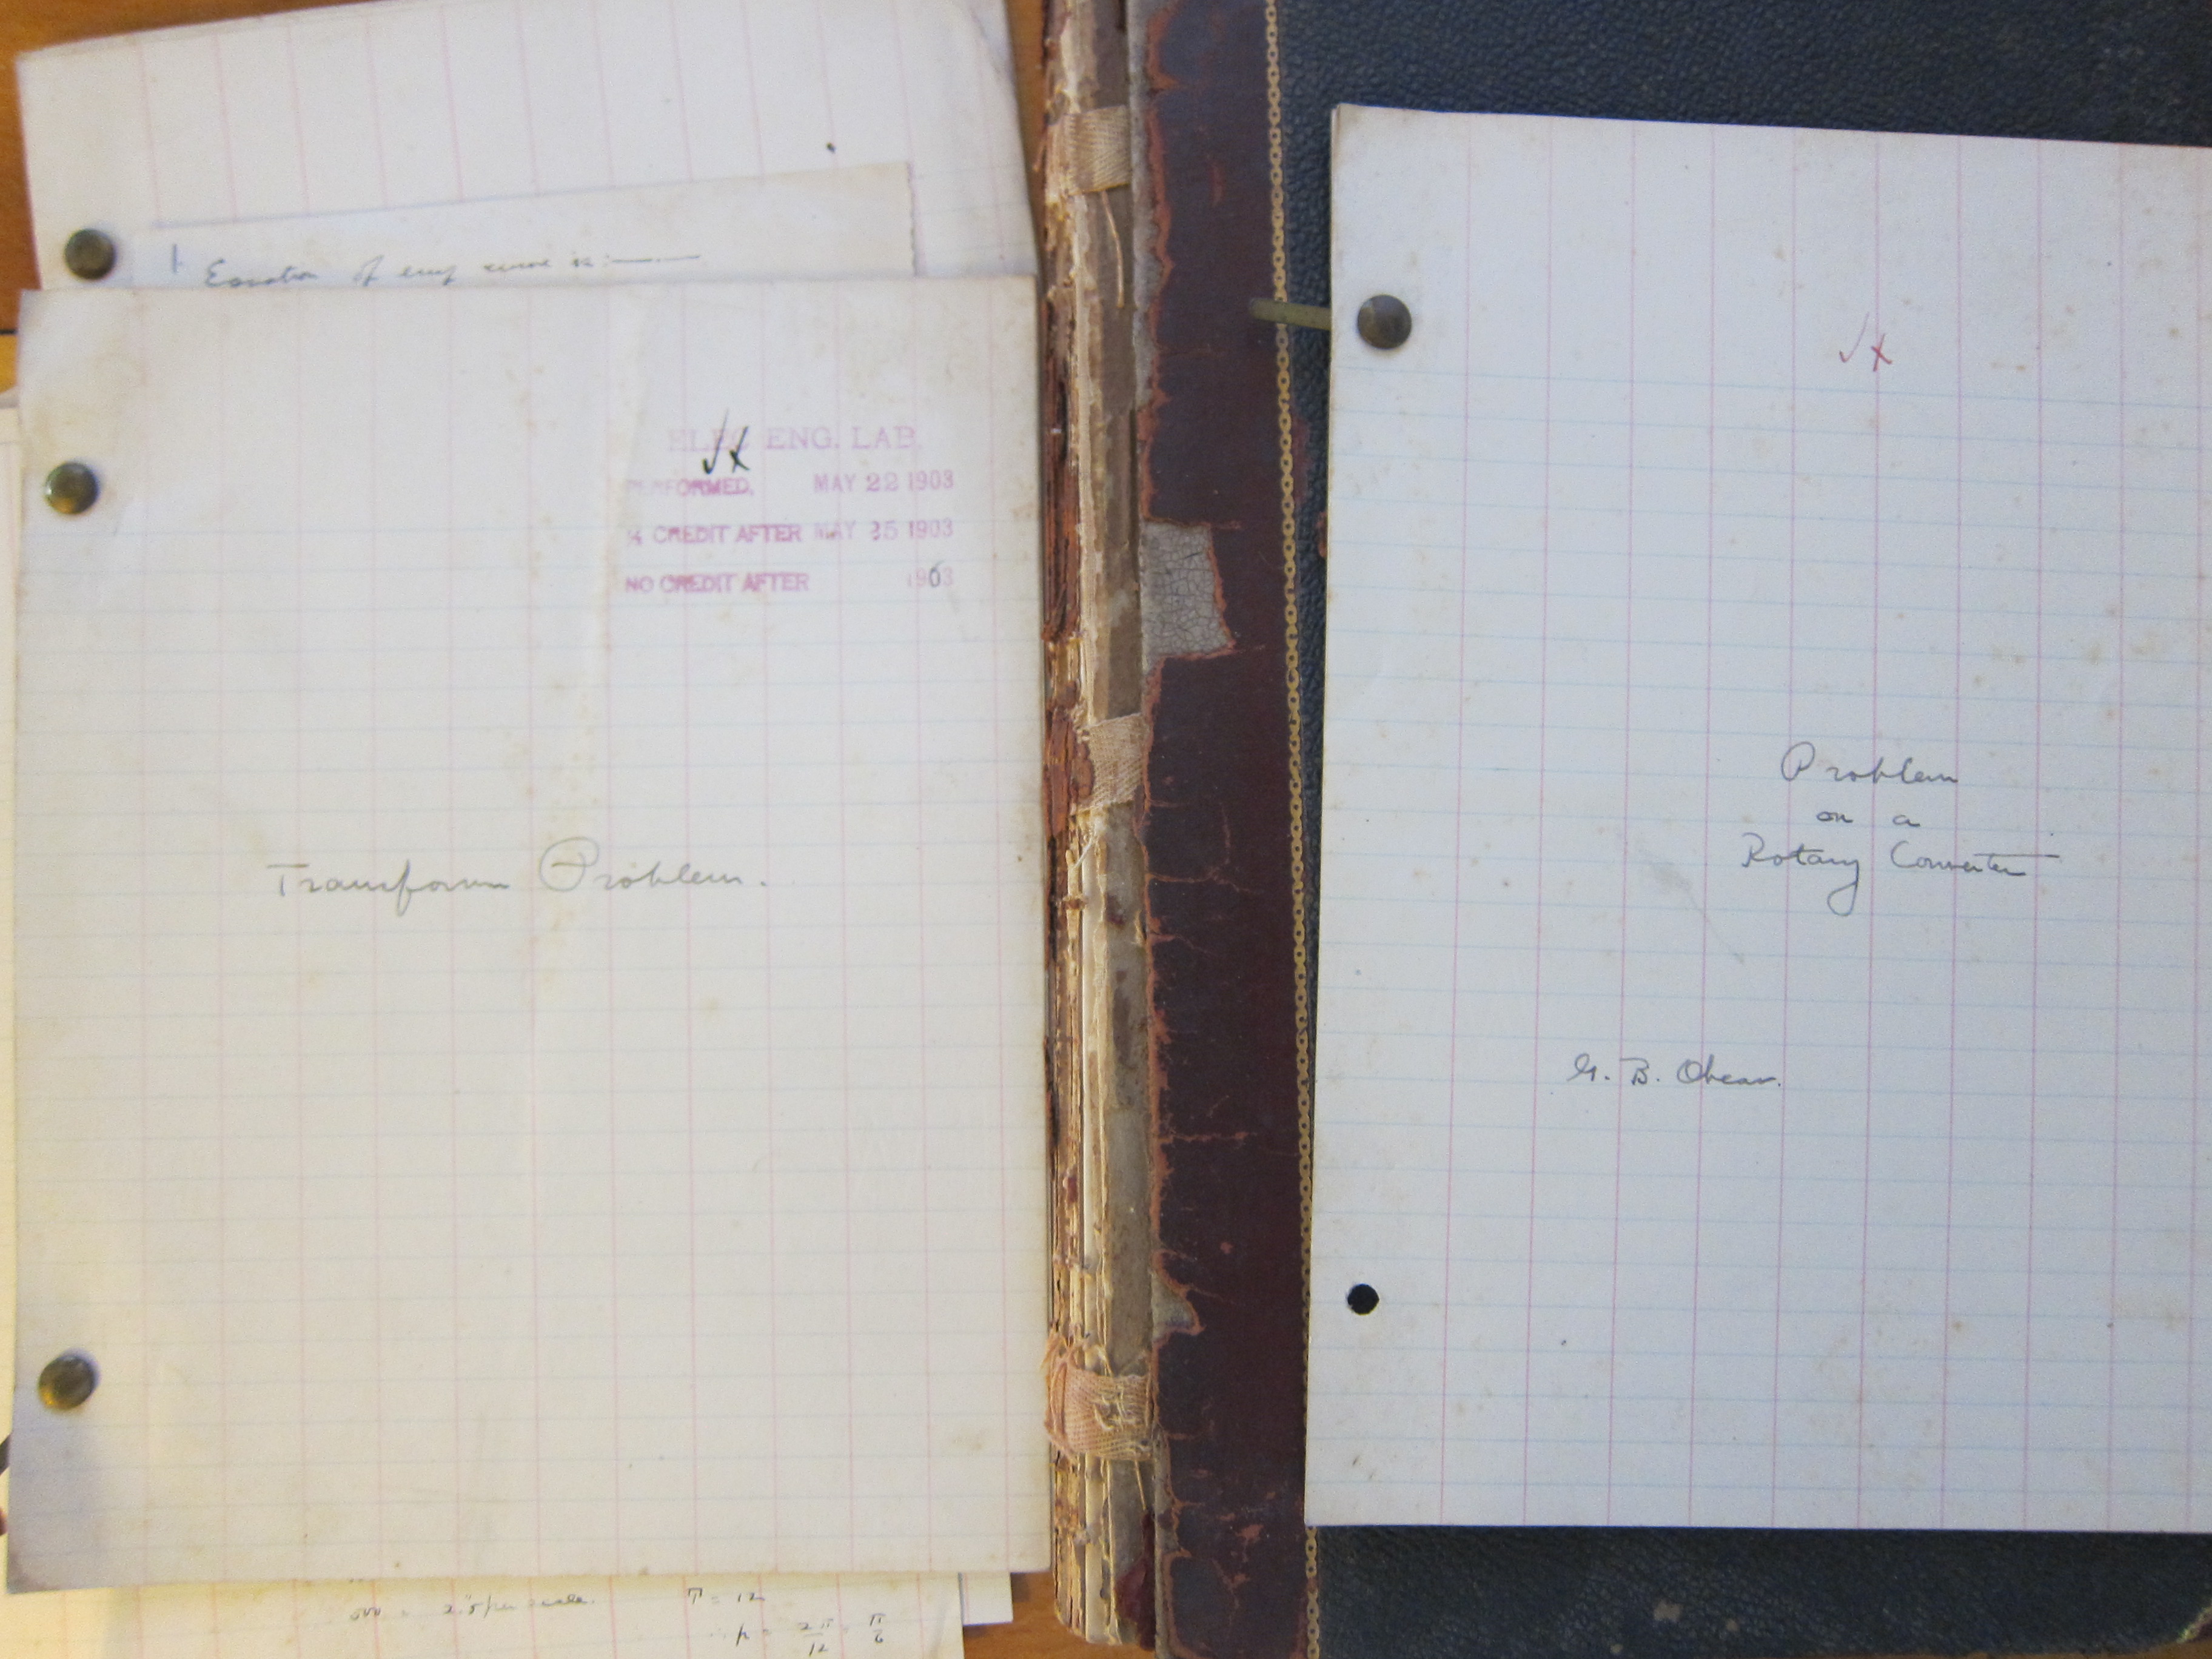 Equation of emf curve is:
ELEC ENG. LAB.
PERFORMED, MAY 22 1903
½ CREDIT AFTER MAY 25 1903
NO CREDIT AFTER 1903
Transform Problem.
T = 12
p = 2π/12 = π/6
Problem
on a
Rotary Converter
G. B. Obear.